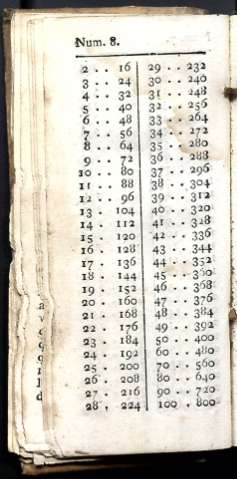 Num. 8.
2 . . 16
3 . . 24
4 . . 32
5 . . 40
6 . . 48
7 . . 56
8 . . 64
9 . . 72
10 . . 80
11 . . 88
12 . . 96
13 . 104
14 . . 112
15 . . 120
16 . . 128
17 . . 136
18 . . 144
19 . . 152
20 . . 160
21 . . 168
22 . . 176
23 . . 184
24 . . 192
25 . . 200
26 . . 208
27 . . 216
28 . . 224
29 . . 232
30 . . 240
31 . . 248
32 . . 256
33 . . 264
34 . . 272
35 . . 280
36 . . 288
37 . . 296
38 . . 304
39 . . 312
40 . . 320
41 . . 328
42 . . 336
43 . . 344
44 . . 352
45 . . 360
46 . . 368
47 . . 376
48 . . 384
49 . . 392
50 . . 400
60 . . 480
70 . . 560
80 . . 640
90 . . 720
100 . . 800